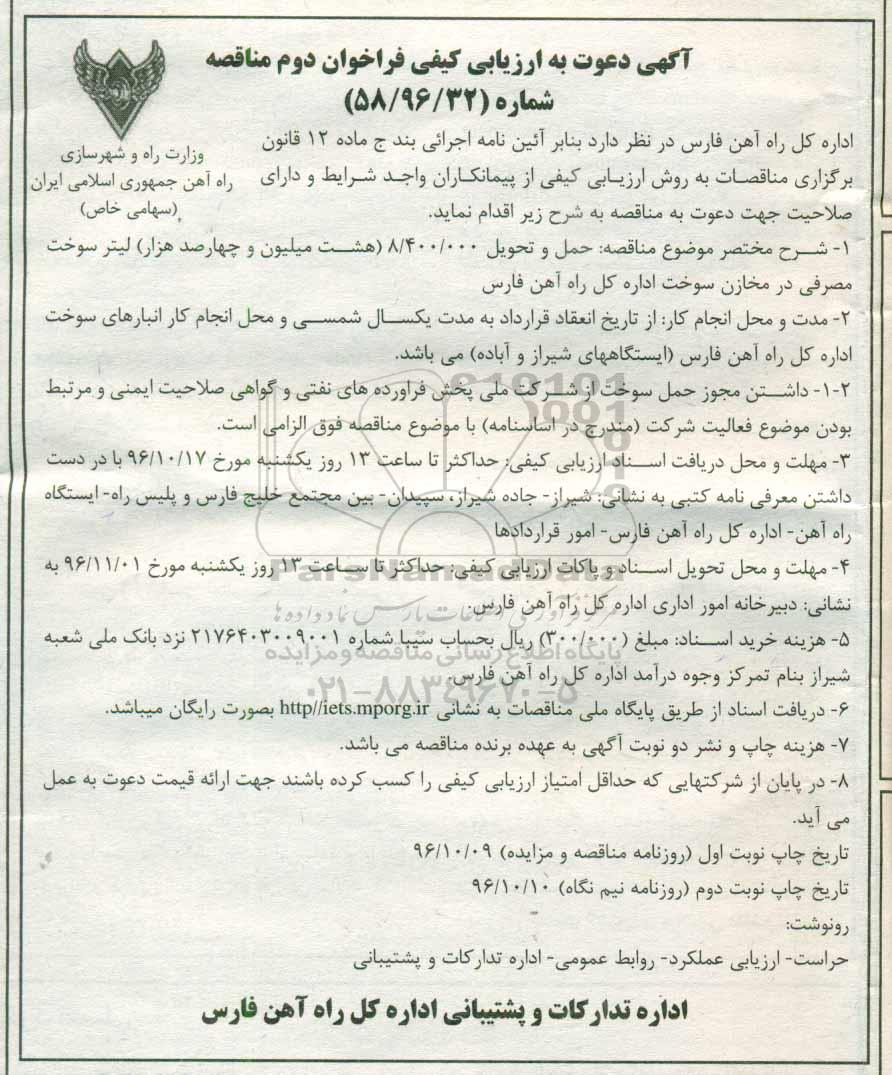 آگهی دعوت به ارزیابی کیفی فراخوان دوم مناقصه
شماره (۵۸/۹۶/۳۲)
وزارت راه و شهرسازی
راه آهن جمهوری اسلامی ایران
(سهامی خاص)
اداره کل راه آهن فارس در نظر دارد بنابر آئین نامه اجرائی بند ج ماده ۱۲ قانون
برگزاری مناقصات به روش ارزیابی کیفی از پیمانکاران واجد شرایط و دارای
صلاحیت جهت دعوت به مناقصه به شرح زیر اقدام نماید.
۱- شرح مختصر موضوع مناقصه: حمل و تحویل ۸/۴۰۰/۰۰۰ (هشت میلیون و چهارصد هزار) لیتر سوخت
مصرفی در مخازن سوخت اداره کل راه آهن فارس
۲- مدت و محل انجام کار: از تاریخ انعقاد قرارداد به مدت یکسال شمسی و محل انجام کار انبارهای سوخت
اداره کل راه آهن فارس (ایستگاههای شیراز و آباده) می باشد.
۱-۲- داشتن مجوز حمل سوخت از شرکت ملی پخش فراورده های نفتی و گواهی صلاحیت ایمنی و مرتبط
بودن موضوع فعالیت شرکت (مندرج در اساسنامه) با موضوع مناقصه فوق الزامی است.
۳- مهلت و محل دریافت اسناد ارزیابی کیفی: حداکثر تا ساعت ۱۳ روز یکشنبه مورخ ۹۶/۱۰/۱۷ با در دست
داشتن معرفی نامه کتبی به نشانی: شیراز- جاده شیراز، سپیدان- بین مجتمع خلیج فارس و پلیس راه- ایستگاه
راه آهن- اداره کل راه آهن فارس- امور قراردادها
۴- مهلت و محل تحویل اسناد و پاکات ارزیابی کیفی: حداکثر تا ساعت ۱۳ روز یکشنبه مورخ ۹۶/۱۱/۰۱ به
ParsNamadData
نشانی: دبیرخانه امور اداری اداره کل راه آهن فارس.
مرکز فرآوری اطلاعات پارس نماد داده ها
۵- هزینه خرید اسناد: مبلغ (۳۰۰/۰۰۰) ریال بحساب سیبا شماره ۲۱۷۶۴۰۳۰۰۹۰۰۱ نزد بانک ملی شعبه
پایگاه اطلاع رسانی مناقصه و مزایده
شیراز بنام تمرکز وجوه درآمد اداره کل راه آهن فارس.
۰۲۱-۸۸۳۴۹۶۷۰-۵
۶- دریافت اسناد از طریق پایگاه ملی مناقصات به نشانی http//iets.mporg.ir بصورت رایگان میباشد.
۷- هزینه چاپ و نشر دو نوبت آگهی به عهده برنده مناقصه می باشد.
۸- در پایان از شرکتهایی که حداقل امتیاز ارزیابی کیفی را کسب کرده باشند جهت ارائه قیمت دعوت به عمل
می آید.
تاریخ چاپ نوبت اول (روزنامه مناقصه و مزایده) ۹۶/۱۰/۰۹
تاریخ چاپ نوبت دوم (روزنامه نیم نگاه) ۹۶/۱۰/۱۰
رونوشت:
حراست- ارزیابی عملکرد- روابط عمومی- اداره تدارکات و پشتیبانی
اداره تدارکات و پشتیبانی اداره کل راه آهن فارس